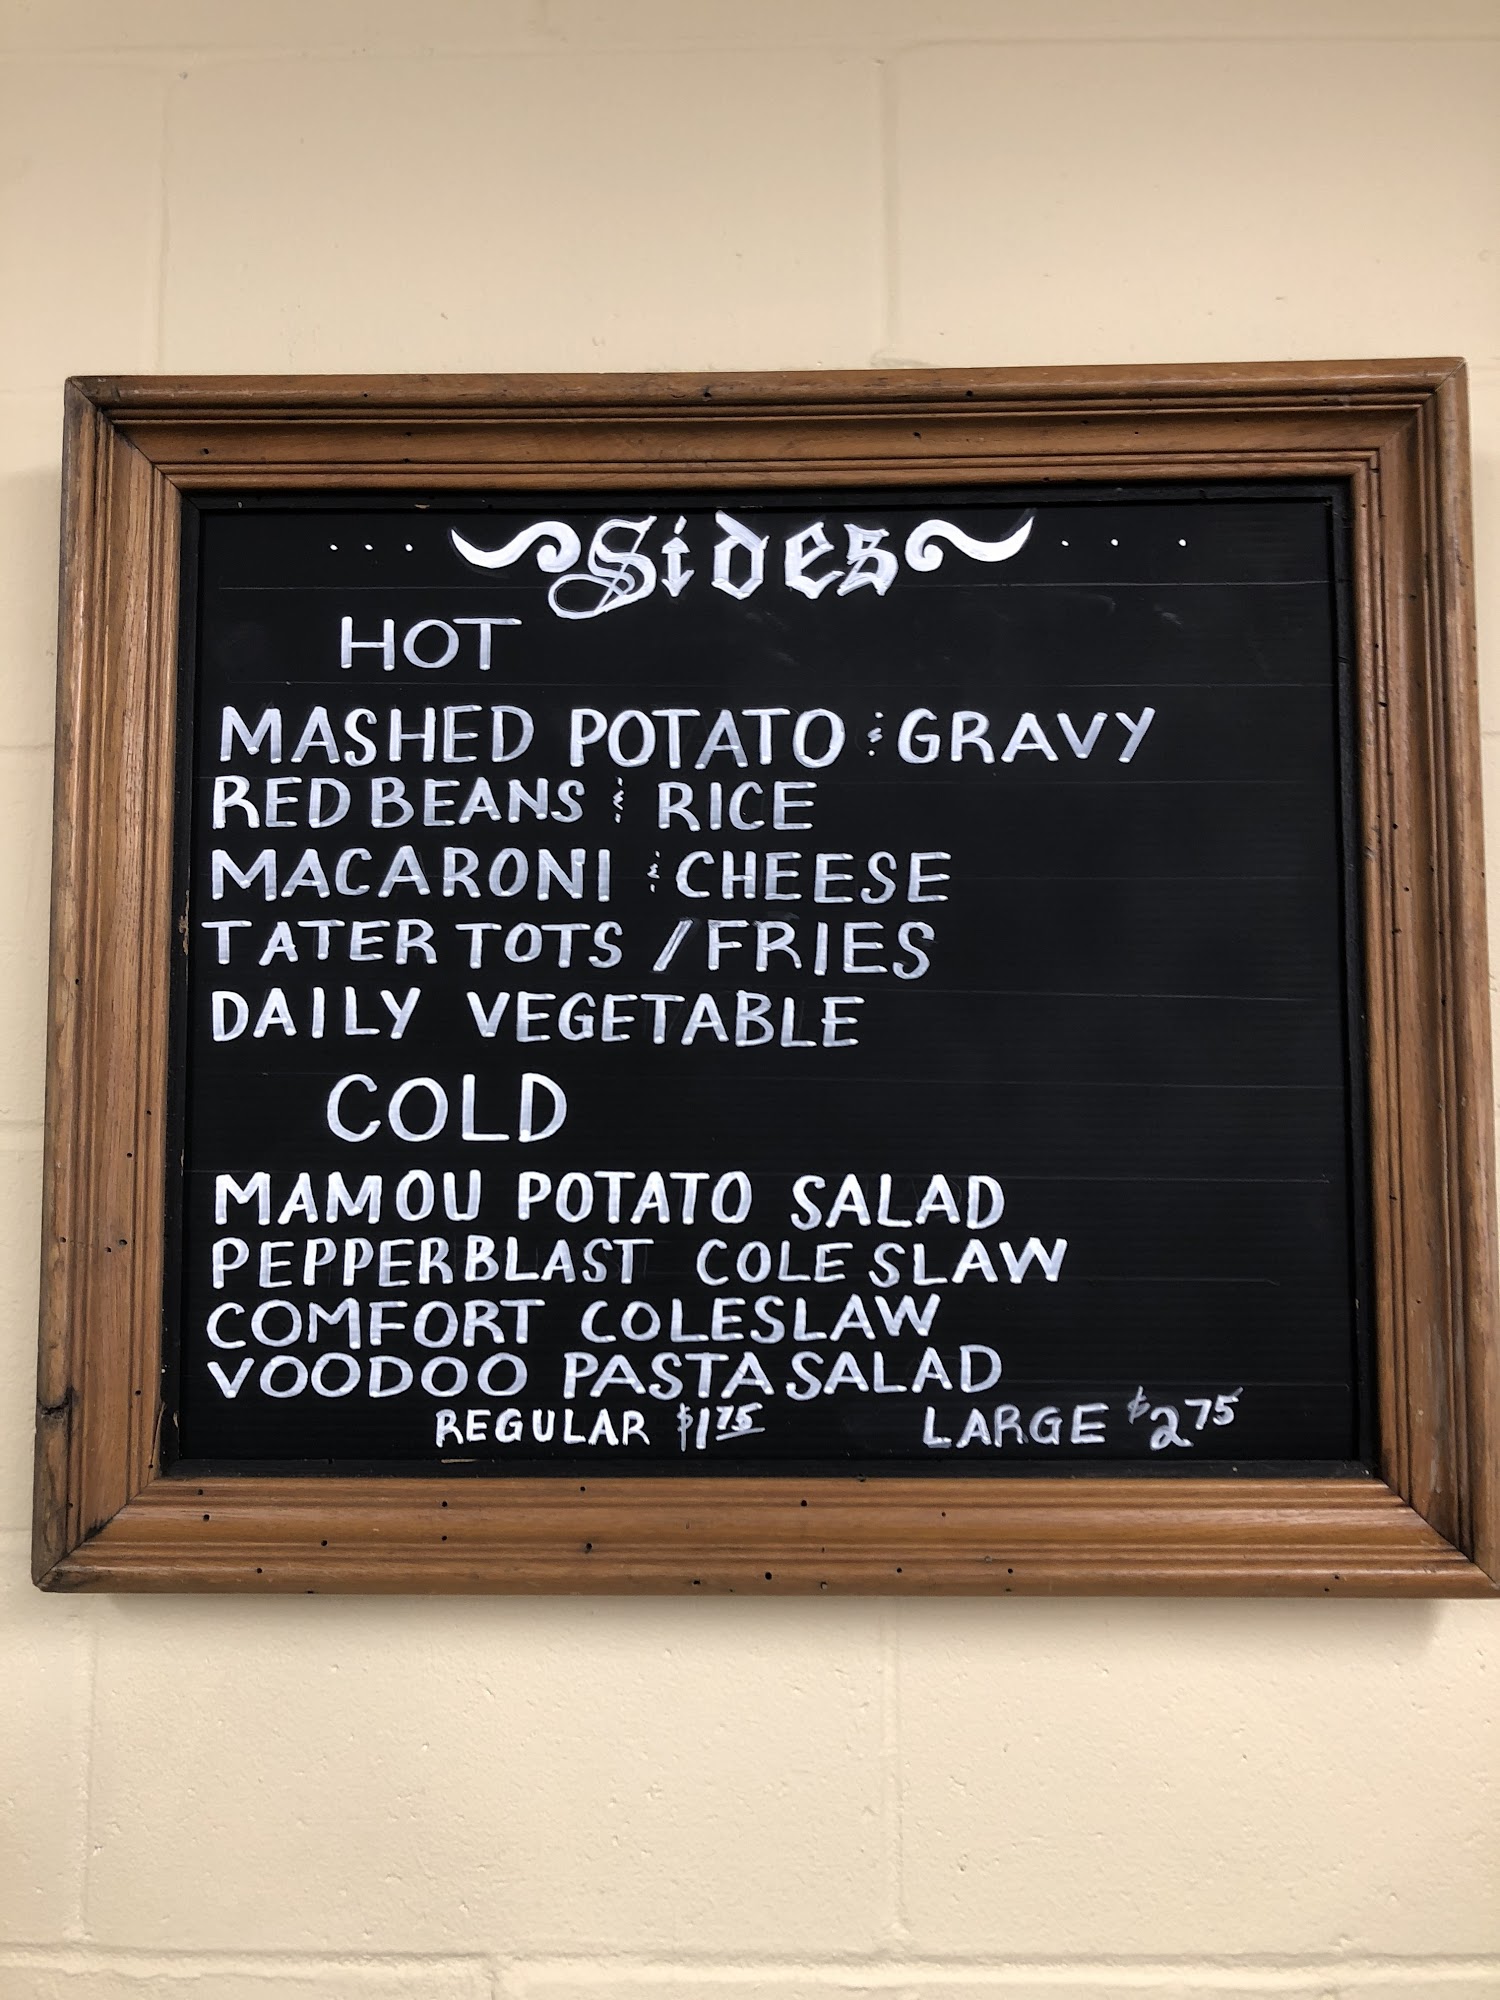 Sides
HOT
MASHED POTATO & GRAVY
RED BEANS & RICE
MACARONI & CHEESE
TATER TOTS / FRIES
DAILY VEGETABLE
COLD
MAMOU POTATO SALAD
PEPPERBLAST COLESLAW
COMFORT COLESLAW
VOODOO PASTA SALAD
REGULAR $1.75 LARGE $2.75